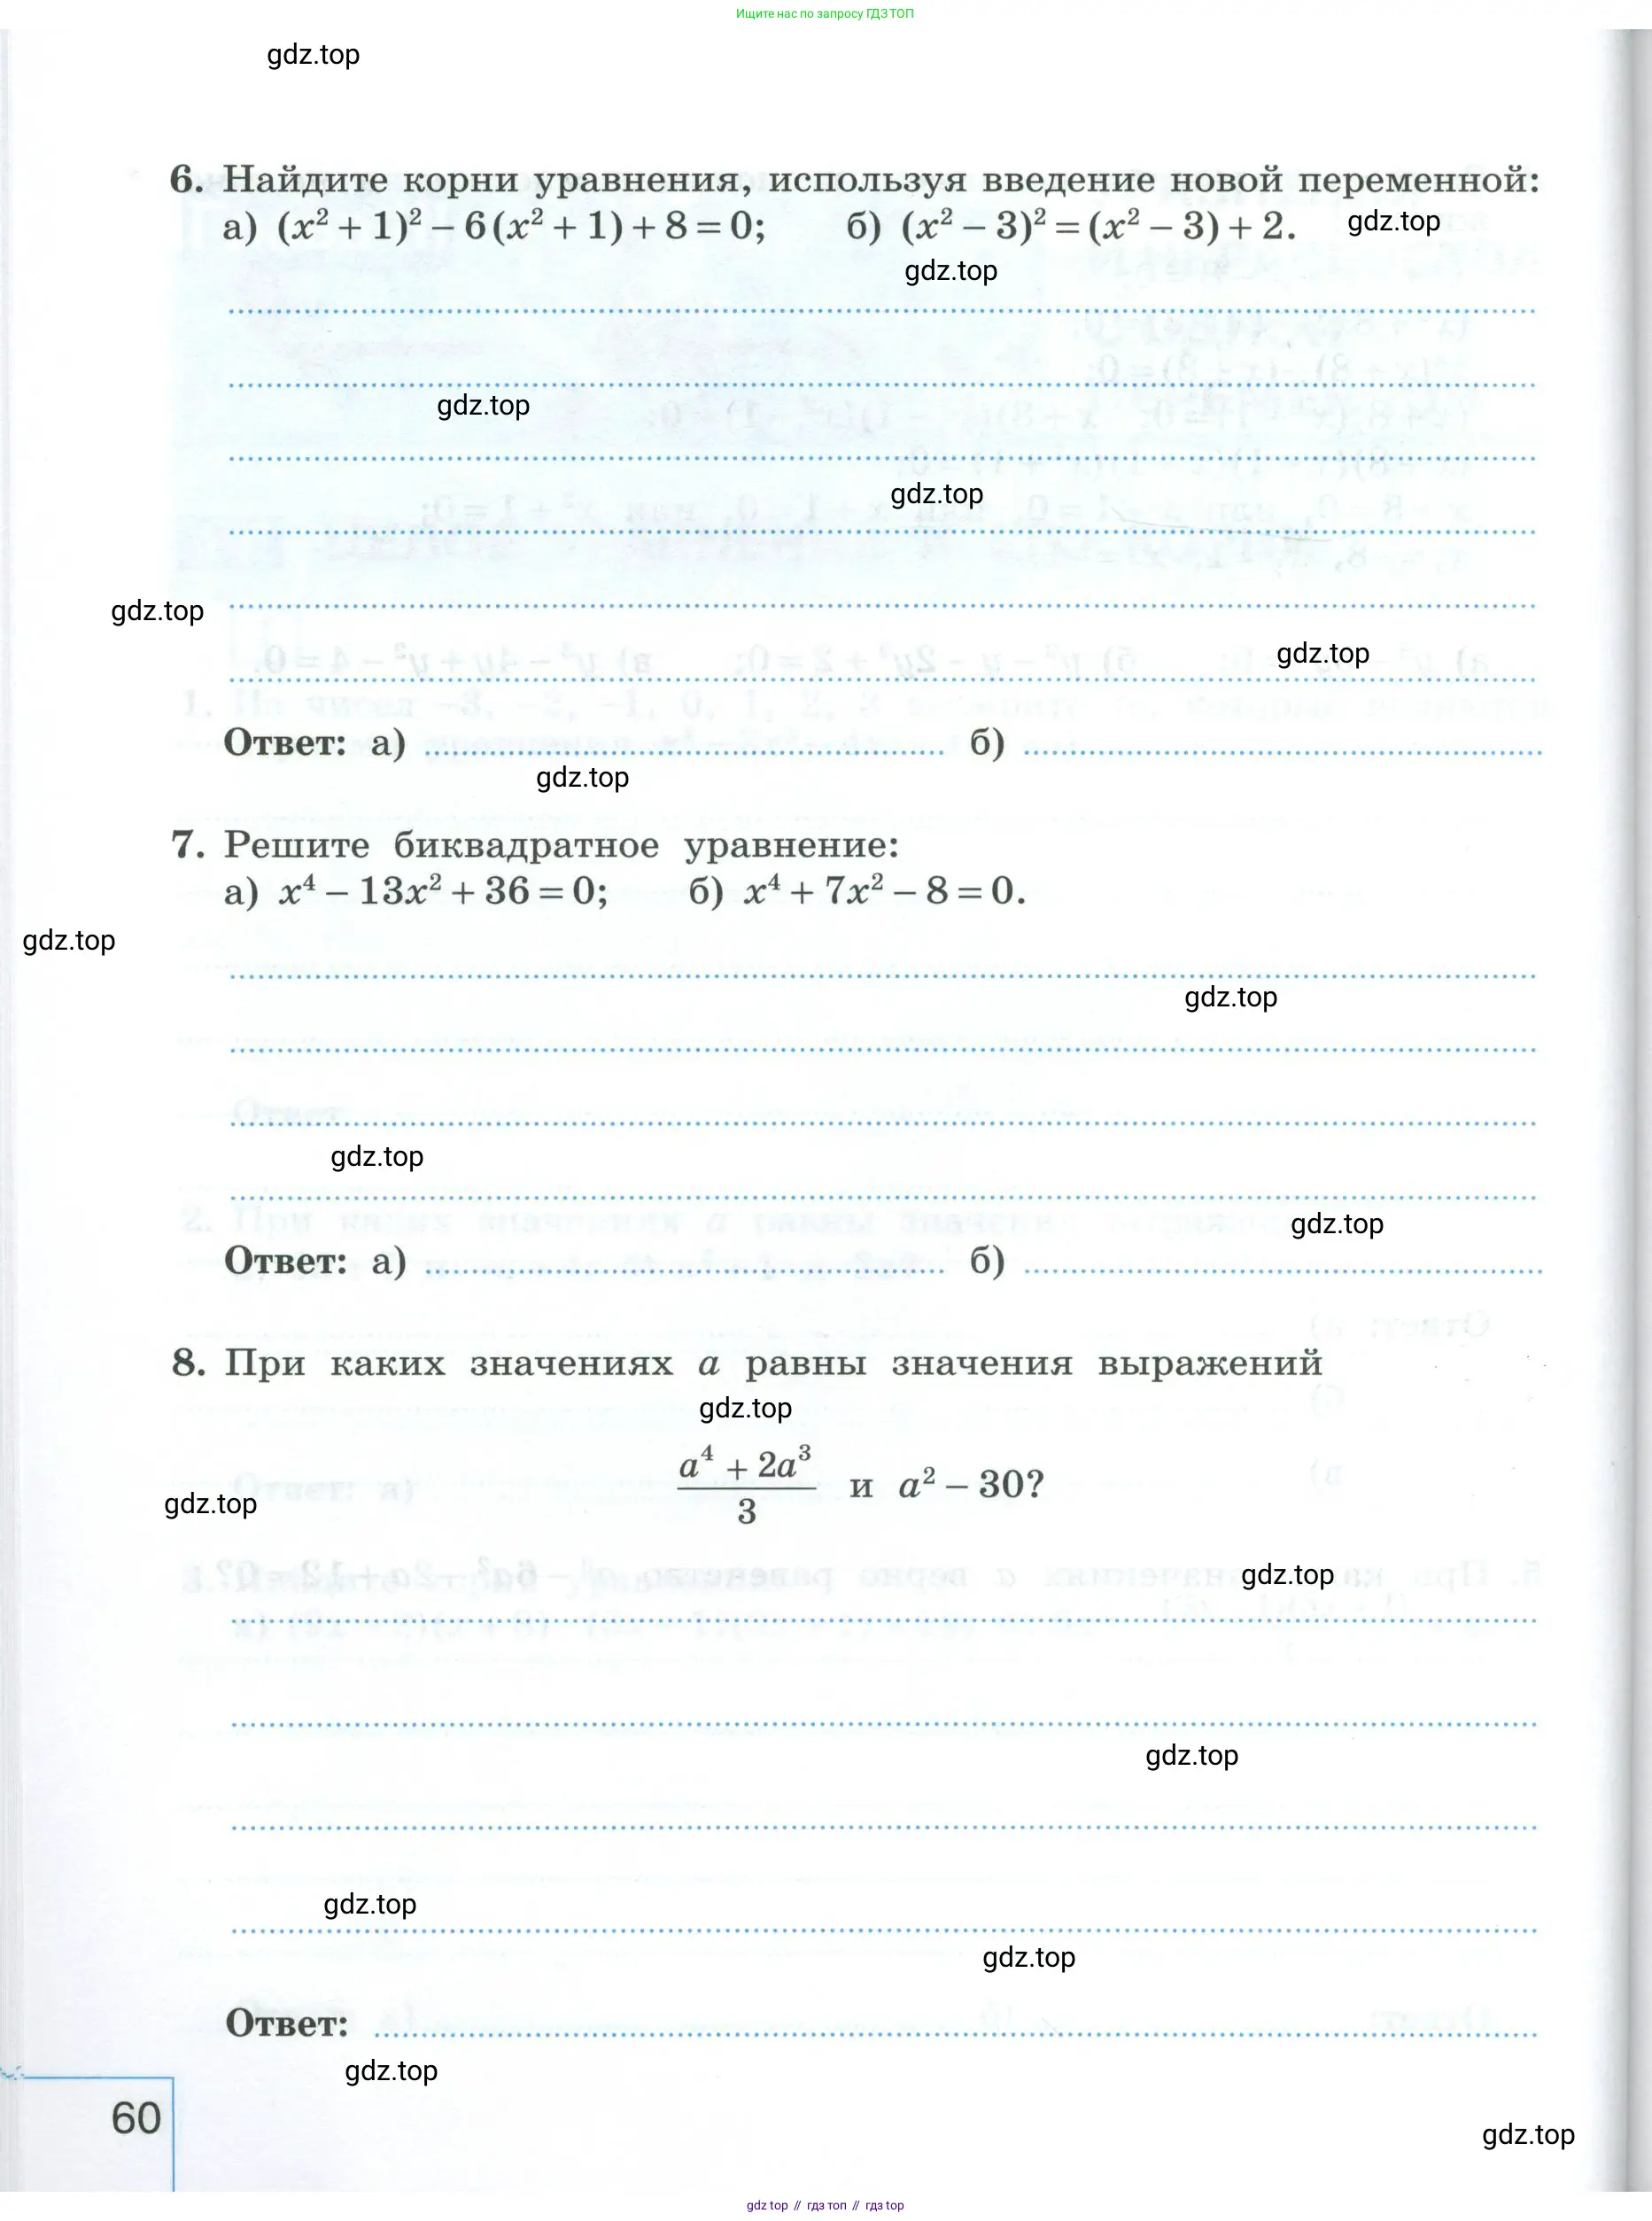 Ищите нас по запросу ГДЗ ТОП
gdz.top
6. Найдите корни уравнения, используя введение новой переменной:
а) (x² + 1)² – 6(x² + 1) + 8 = 0; б) (x² – 3)² = (x² – 3) + 2. gdz.top
gdz.top
gdz.top
gdz.top
gdz.top
gdz.top
Ответ: а) б)
gdz.top
7. Решите биквадратное уравнение:
а) x⁴ – 13x² + 36 = 0; б) x⁴ + 7x² – 8 = 0.
gdz.top
gdz.top
gdz.top
gdz.top
Ответ: а) б)
8. При каких значениях a равны значения выражений
gdz.top
a⁴ + 2a³
и a² – 30?
3
gdz.top
gdz.top
gdz.top
gdz.top
gdz.top
Ответ:
gdz.top
60
gdz.top
gdz top // гдз топ // гдз top